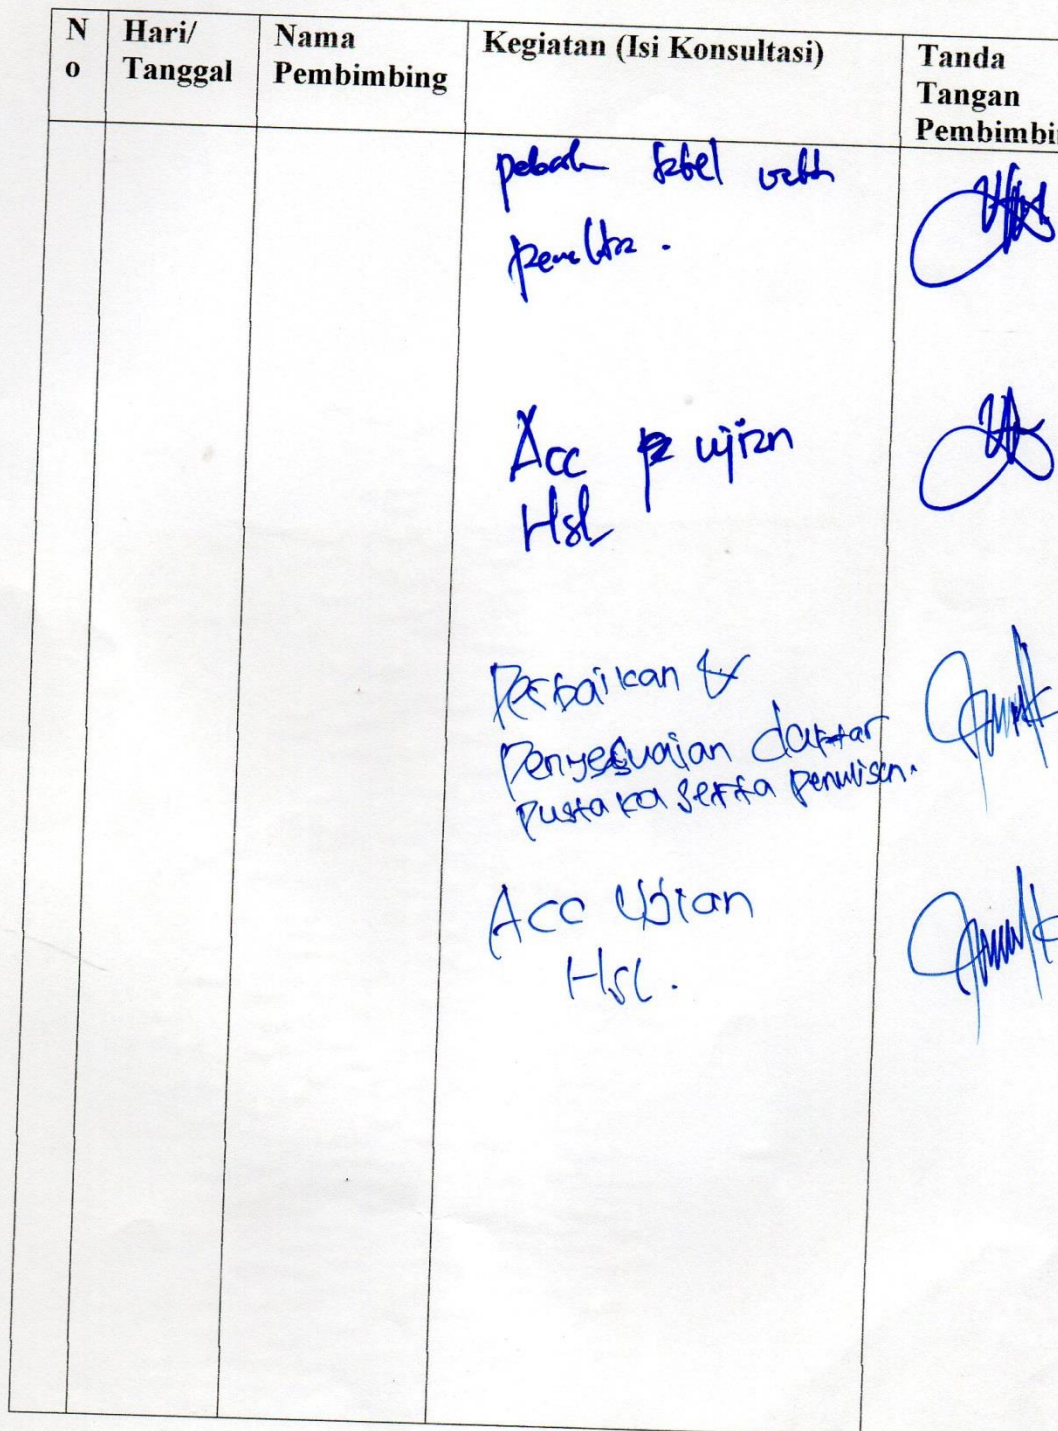 No
Hari/
Tanggal
Nama
Pembimbing
Kegiatan (Isi Konsultasi)
Tanda
Tangan
Pembimbi
Acc ujian
Hsl
Perbaikan &
Penyesuaian daftar
pustaka serta penulisan.
Acc Ujian
Hsl.